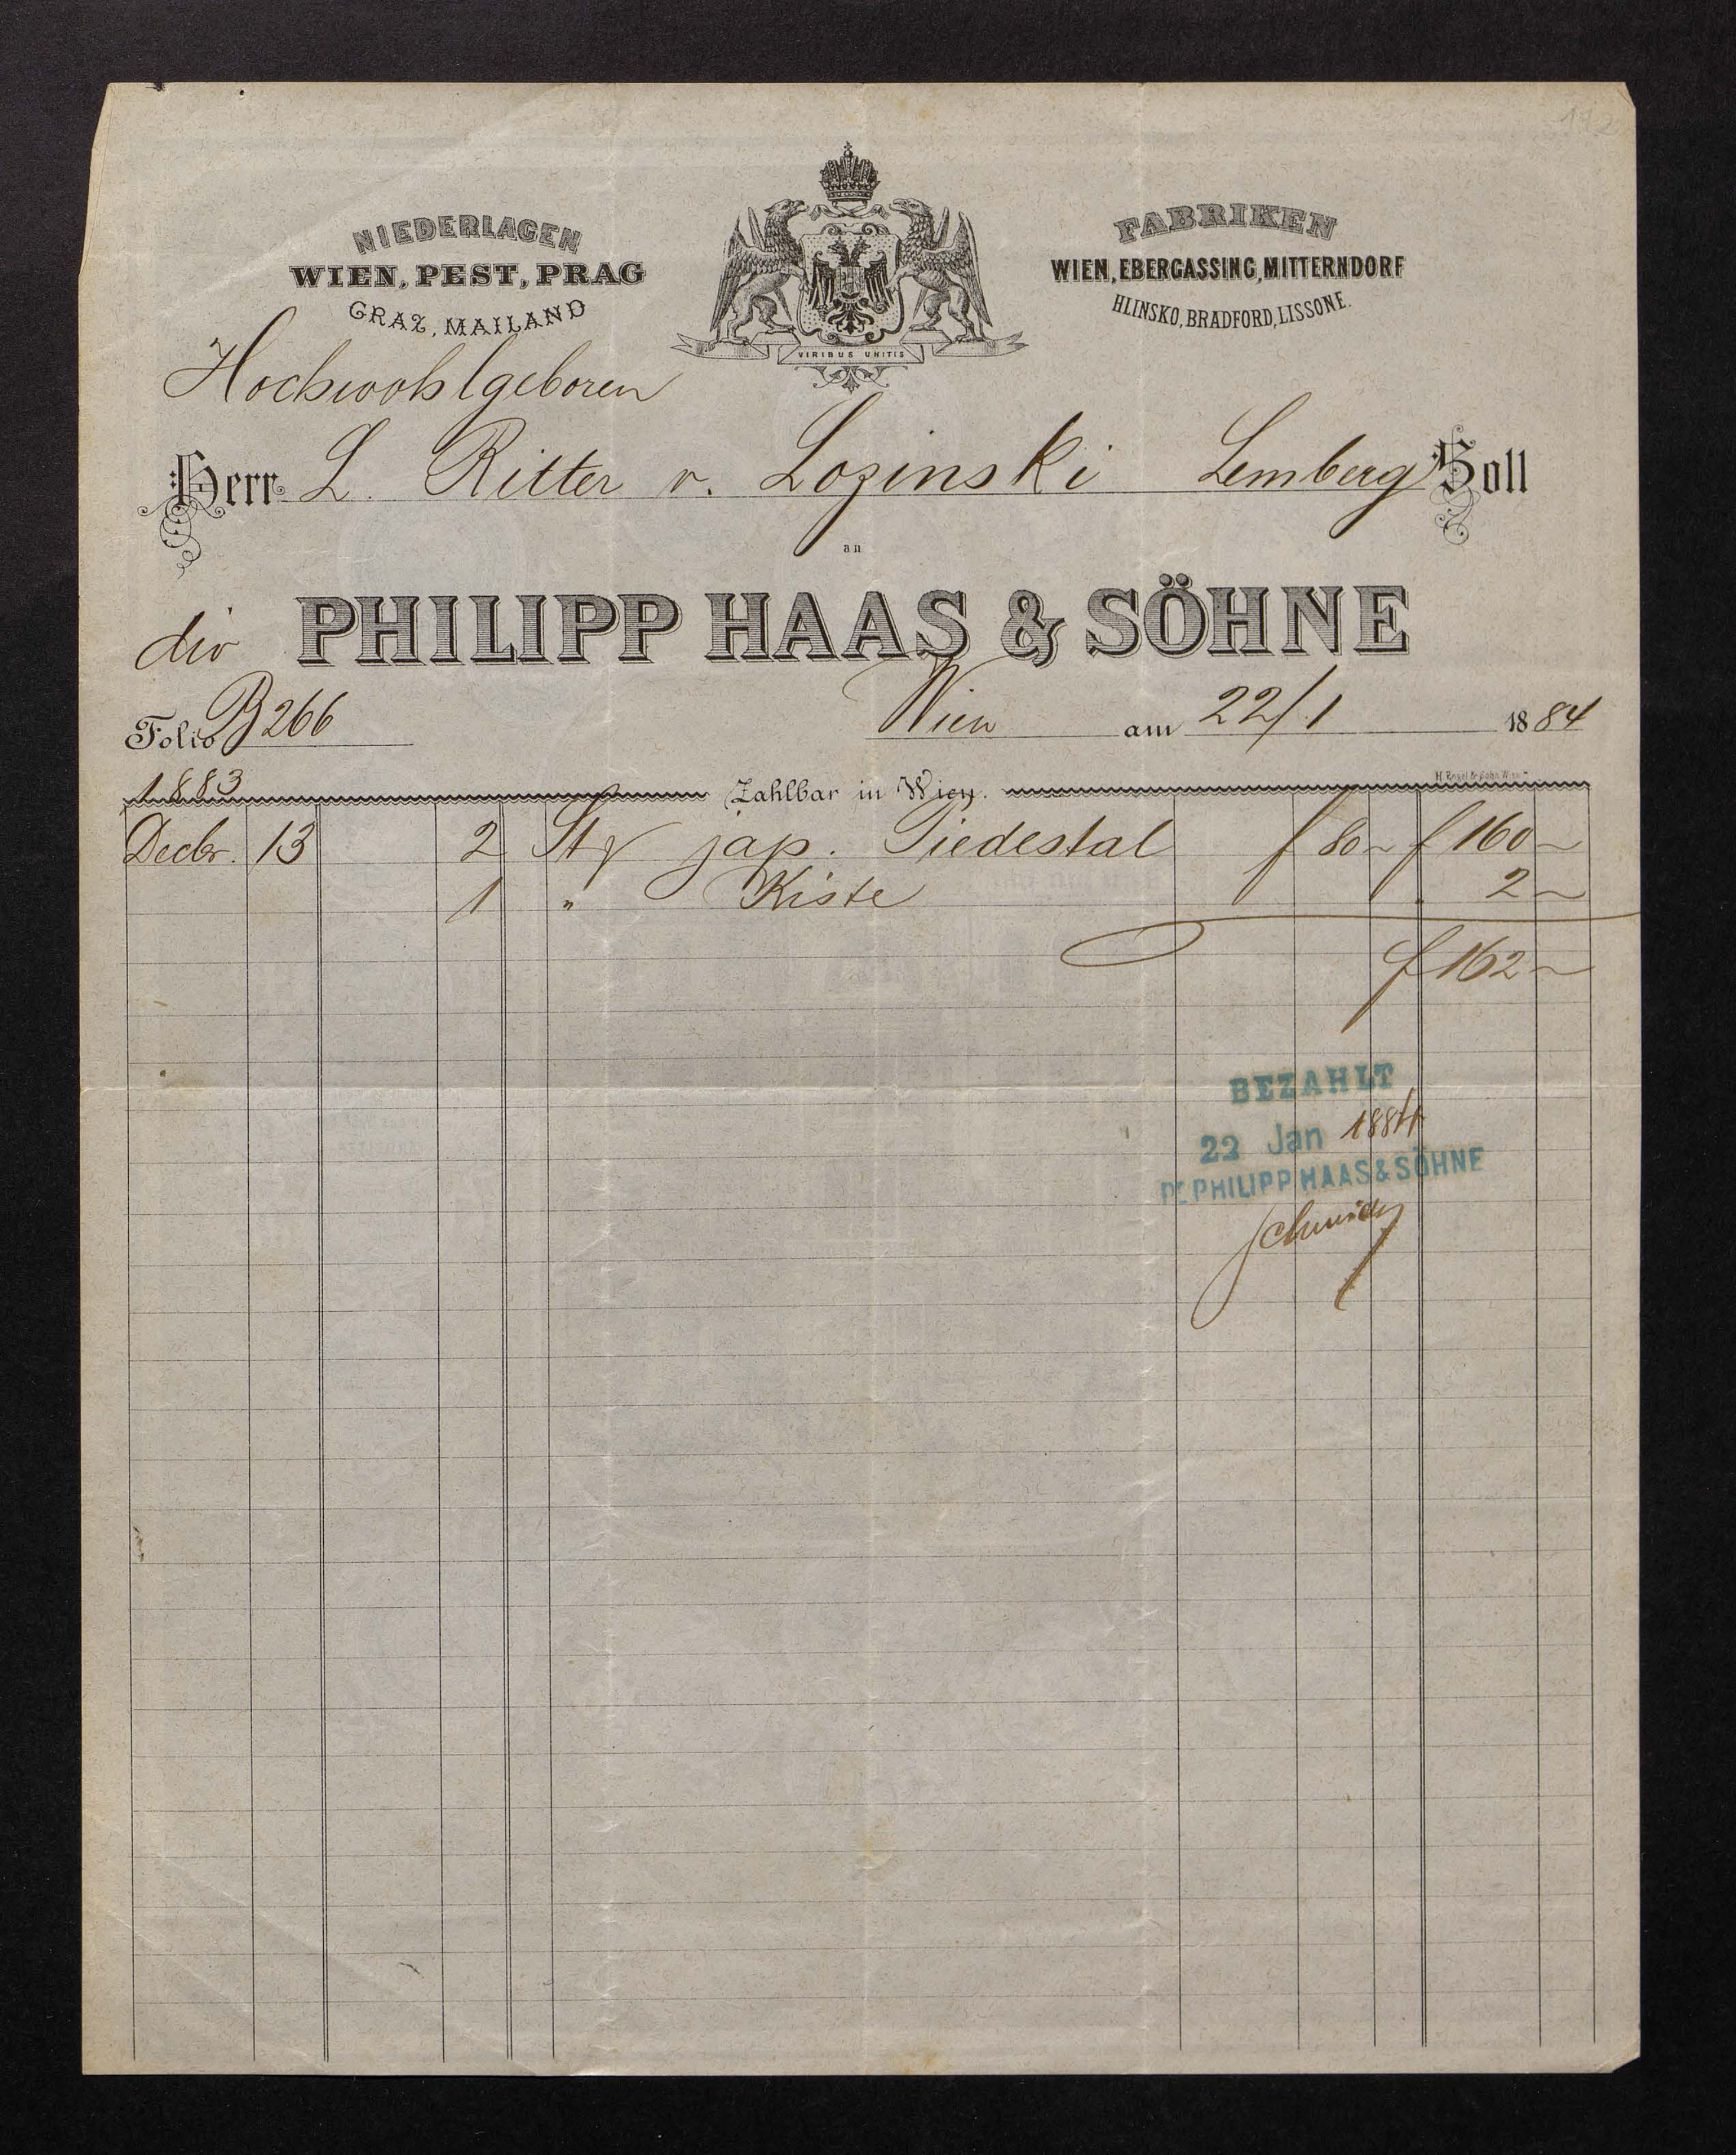 NIEDERLAGEN
WIEN, PEST, PRAG
GRAZ, MAILAND
VIRIBUS UNITIS
FABRIKEN
WIEN, EBERGASSING, MITTERNDORF
HLINSKO, BRADFORD, LISSONE.
Hochwohlgeboren
Herr L. Ritter v. Lozinski Lemberg Soll
an
div PHILIPP HAAS & SÖHNE
Folio B 266 Wien am 22/1 1884
1883 Zahlbar in Wien.
Decbr. 13 2 St jap. Piedestal f 80 ~ f 160 ~
1 " Kiste 2 ~
f 162 ~
BEZAHLT
22 Jan 1884
PR PHILIPP HAAS & SÖHNE